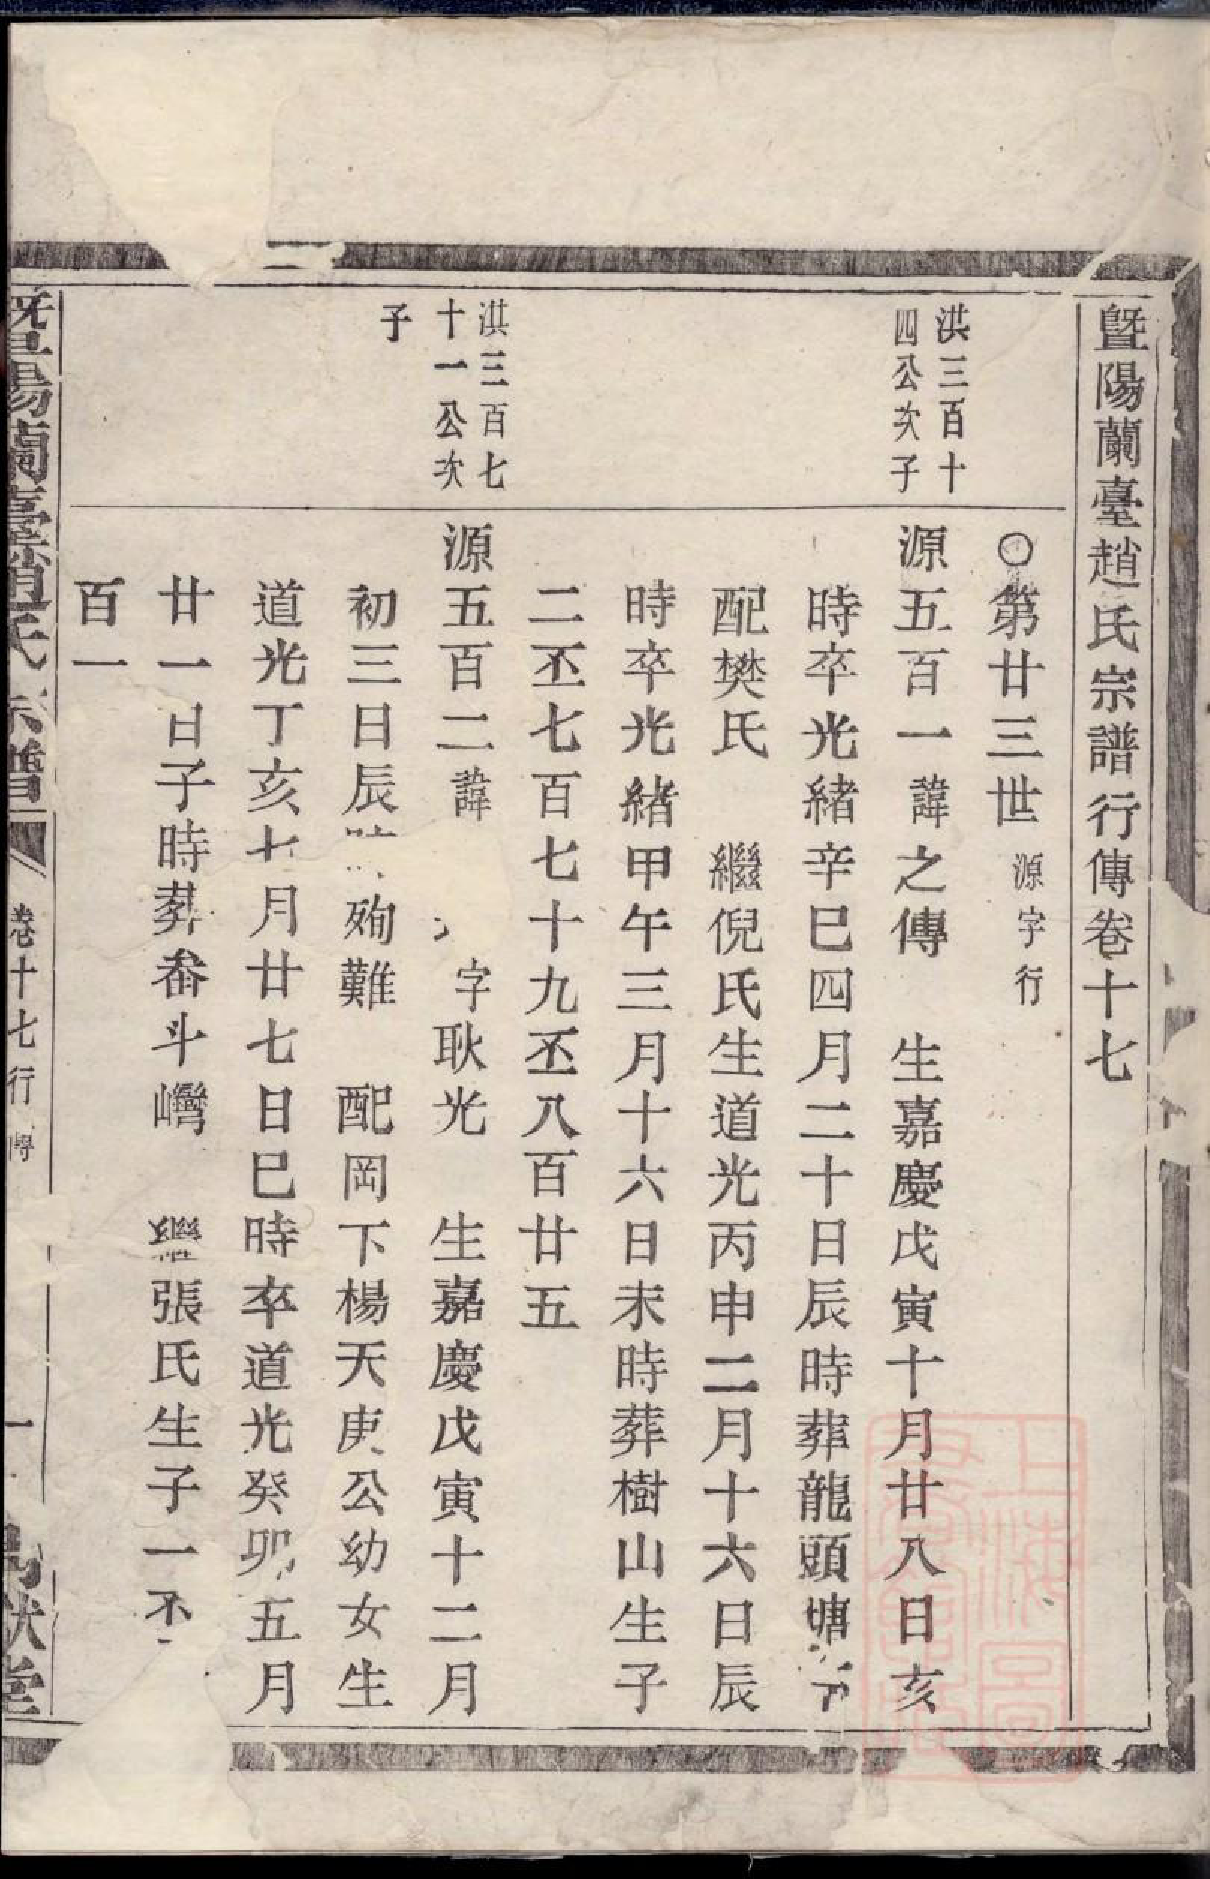 暨陽蘭臺趙氏宗譜行傳卷十七
○第廿三世 源字行
洪三百十
四公次子
源五百一諱之傳 生嘉慶戊寅十月廿八日亥
時卒光緒辛巳四月二十日辰時葬龍頭塘
配樊氏 繼倪氏生道光丙申二月十六日辰
時卒光緒甲午三月十六日未時葬樹山生子
二丕七百七十九丕八百廿五
洪三百七
十一公次
子
源五百二諱 字耿光 生嘉慶戊寅十二月
初三日辰 殉難 配岡下楊天庚公幼女生
道光丁亥七月廿七日巳時卒道光癸卯五月
廿一日子時葬畚斗巒 繼張氏生子一丕
百一
暨陽蘭臺趙氏宗譜
卷十七行傳
一